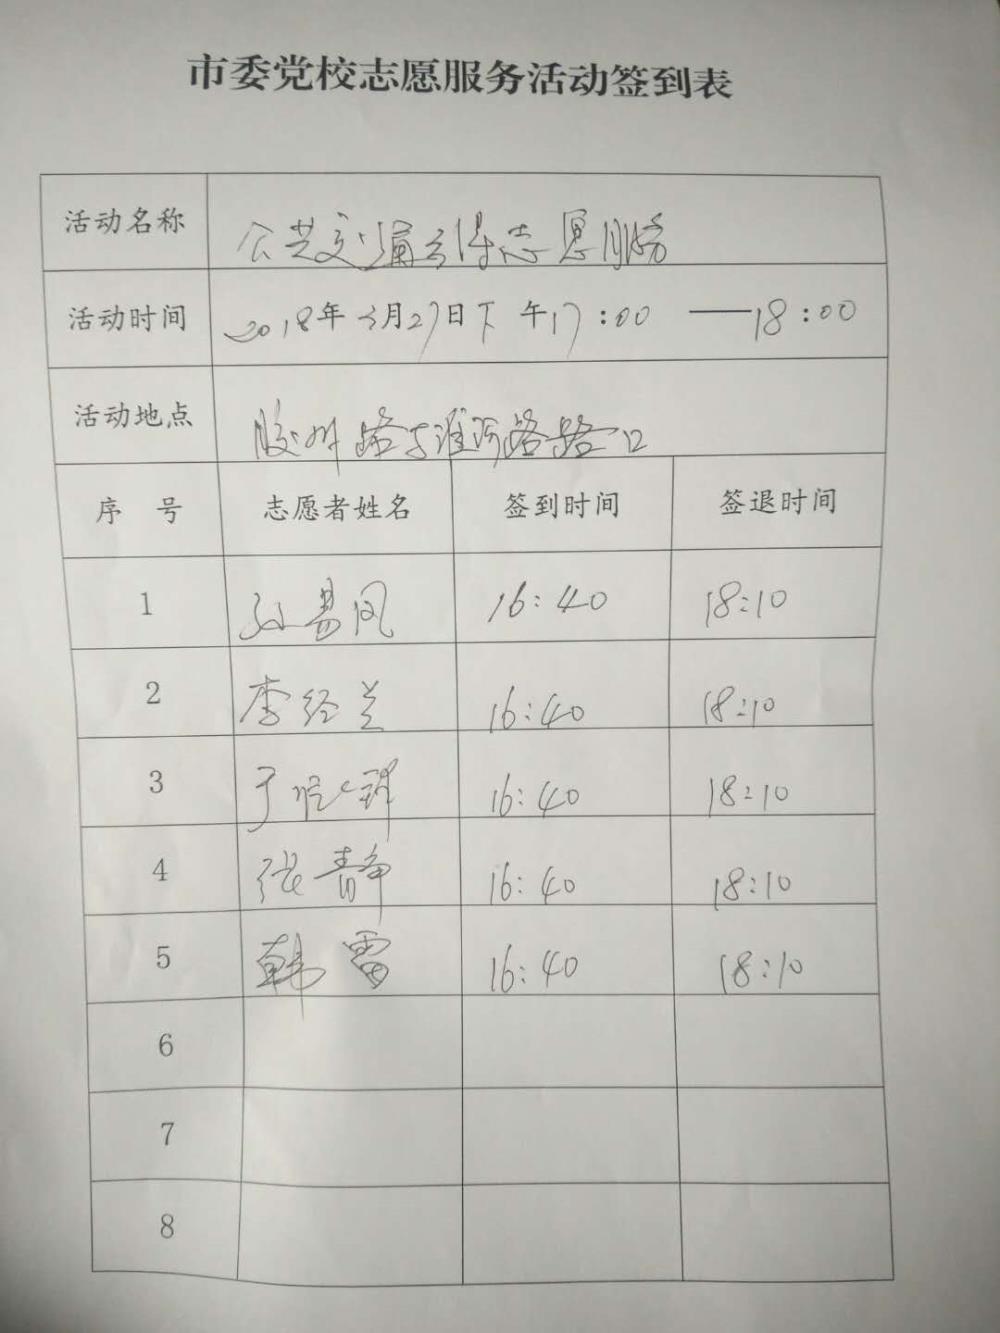 市委党校志愿服务活动签到表
活动名称 公共交通引导志愿服务
活动时间 2018年3月27日下午17:00 —18:00
活动地点 胶州路与淮河路路口
序 号 志愿者姓名 签到时间 签退时间
1 孙易凤 16:40 18:10
2 李经兰 16:40 18:10
3 于 16:40 18:10
4 张青静 16:40 18:10
5 韩雷 16:40 18:10
6
7
8